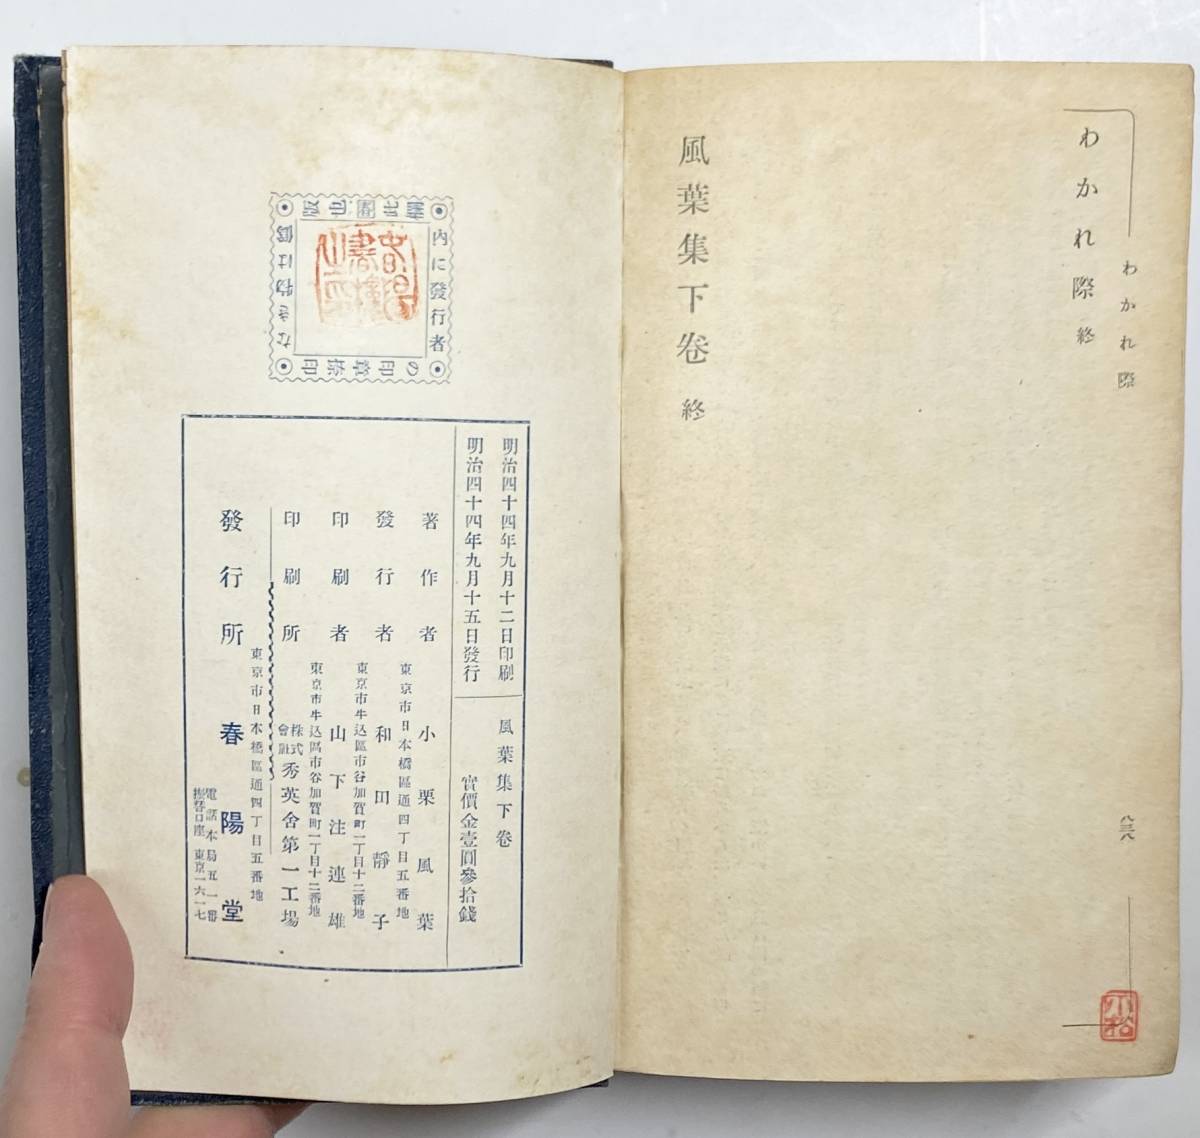 わかれ際
八三八
わかれ際 終
風葉集下卷 終
小松
內に發行者
の印章捺印
なき物は偽
明治四十四年九月十二日印刷
明治四十四年九月十五日發行
風葉集下卷
實價金壹圓參拾錢
著作者 小栗風葉
東京市日本橋區通四丁目五番地
發行者 和田靜子
東京市牛込區市谷加賀町一丁目十二番地
印刷者 山下注連雄
東京市牛込區市谷加賀町一丁目十二番地
印刷所 株式會社 秀英舍第一工場
東京市日本橋區通四丁目五番地
發行所 春陽堂
電話本局五一番
振替口座 東京一六一七